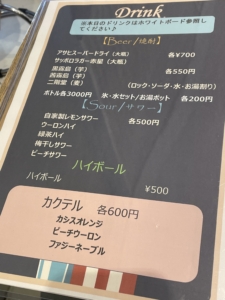 Drink
※本日のドリンクはホワイトボード参照してください♪
【Beer/焼酎】
アサヒスーパードライ(大瓶) 各¥700
サッポロラガー赤星(大瓶)
黒霧島(芋) 各550円
茜霧島(芋)
二階堂(麦) (ロック・ソーダ・水・お湯割り)
ボトル各3000円 氷・水セット/お湯ポット 各200円
【Sour/サワー】
自家製レモンサワー 各500円
ウーロンハイ
緑茶ハイ
梅干しサワー
ピーチサワー
ハイボール
ハイボール ¥500
カクテル 各600円
カシスオレンジ
ピーチウーロン
ファジーネーブル